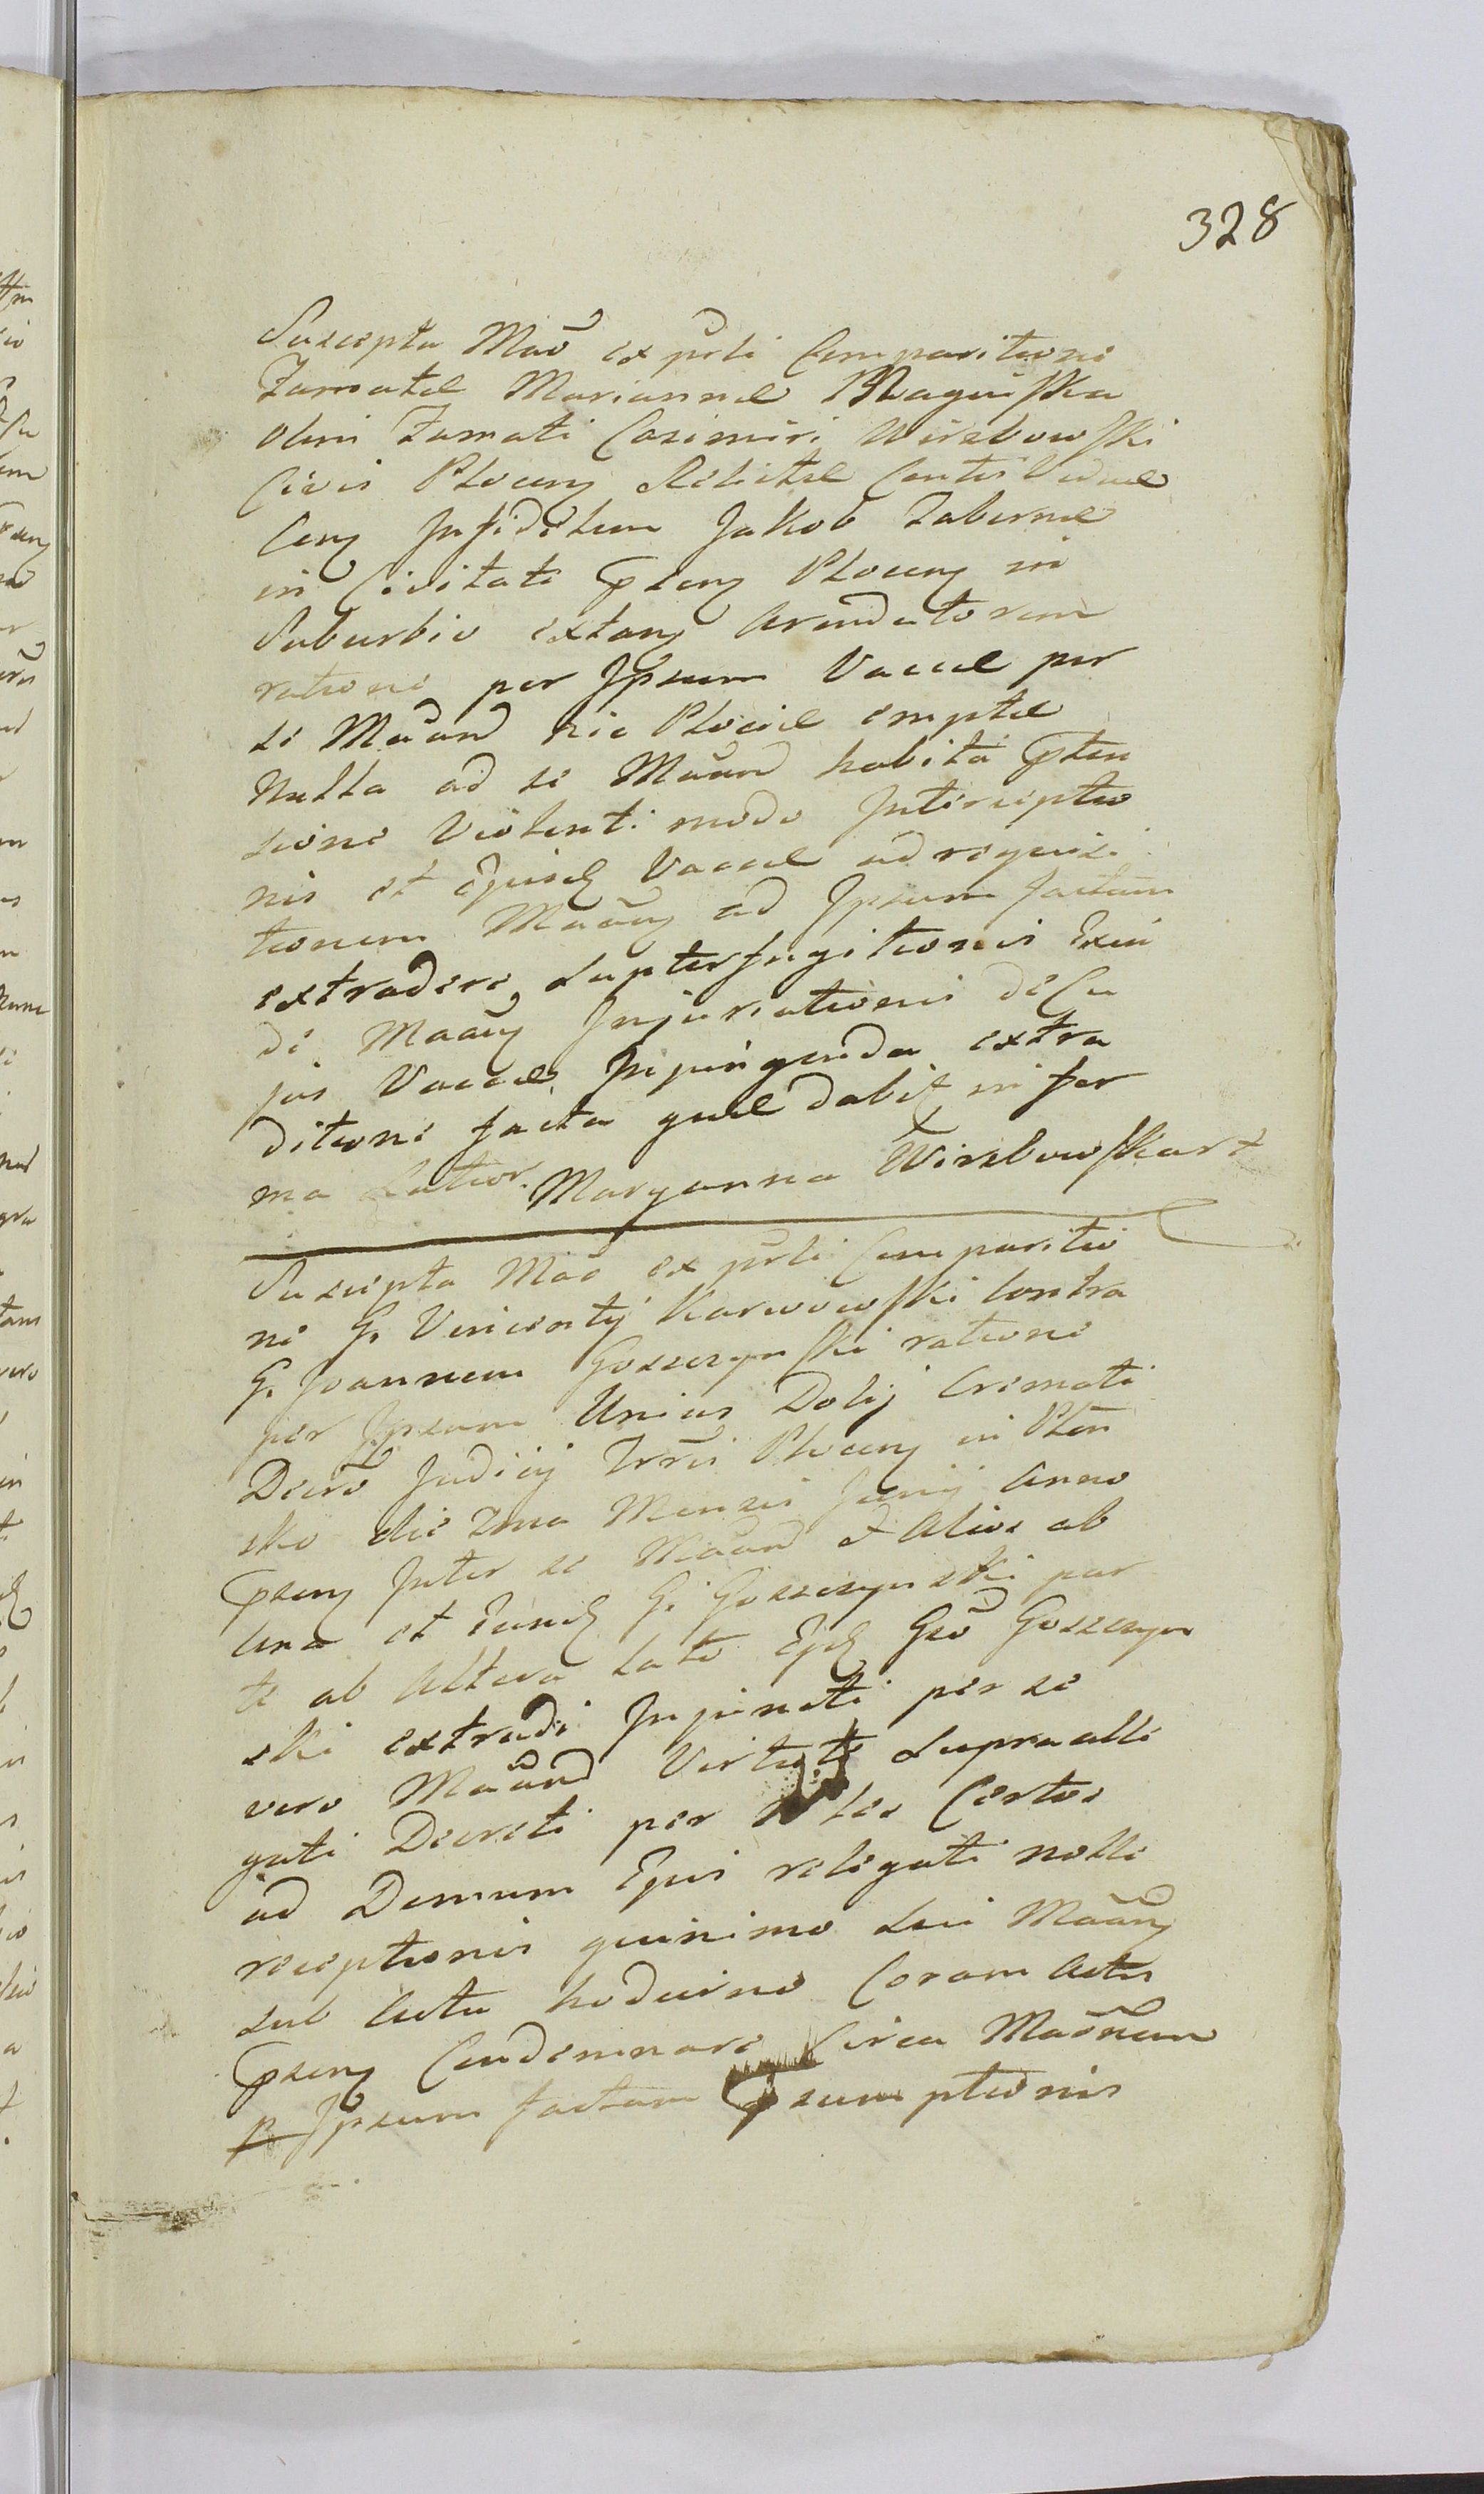 328
Suscepta Maõ ex prli Comparitione
Famatae Mariannae Maguska
olim Famati Casimiri Wirzbowski
Civis Plocen Relictae Contis Viduae
Cong Infidelem Jakob Tabernae
in Civitate Psen Plocen in
Suburbio extan Arendatorem
ratione per Ipsum Vaccae per
se Maand hic Plociae emptae
Nulla ad se Maand habita Pten
sione Violenti modo Interceptio
nis et Ejusd Vaccae ad requisi
tionem Maan ad Ipsum factam
extradere supterfugitionis Exin
de Maan Injuriationis de Cu
jus Vaccae Injungenda extra
ditione facta quae dabit in for
ma Latior. Maryanna Wirzbowska
Suscepta Mao ex prli Comparitio
ne G. Vincenty Karwowski Contra
G. Joannem Goszczynski ratione
per Ipsum Unius Dolij Cremati
Decro Judicij Trris Plocen in Plon
sko die 2ma Mensis Junij Anno
Psen Inter se Maand & Alios ab
Una et Eund G. Goszczynski par
te ab Altera lato Ejd Gso Goszczyn
ski extradi Injuncti per se
vero Maand Virtute supraalle
gati Decreti per Certos
ad Domum Ejus relegati nolle
receptionis quinimo sui Maan
sub Actu hodierno Coram Actis
Psen Condemnare Circa Maonem
p Ipsum factam Psumptionis